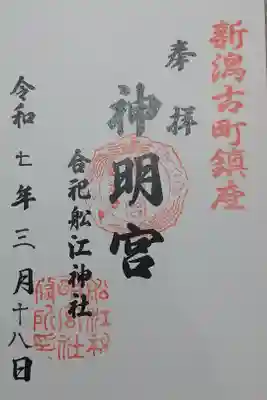 新潟古町鎮座
奉拝
神明宮
合祀舩江神社
令和七年三月十八日